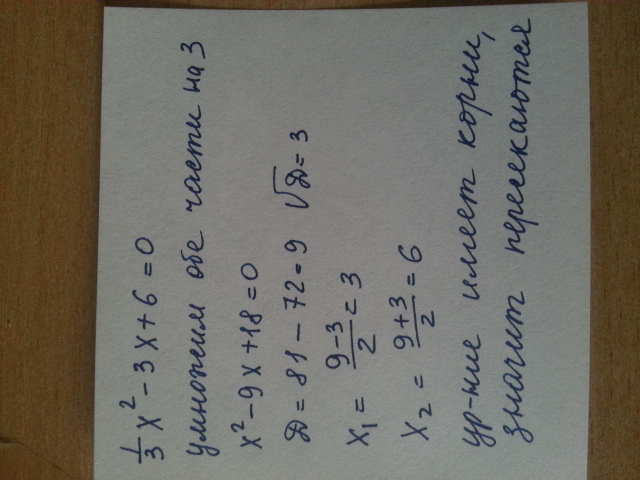 1/3 x² - 3x + 6 = 0
умножим обе части на 3
x² - 9x + 18 = 0
Д = 81 - 72 = 9 √Д = 3
x₁ = (9-3)/2 = 3
x₂ = (9+3)/2 = 6
ур-ние имеет корни,
значит пересекаются